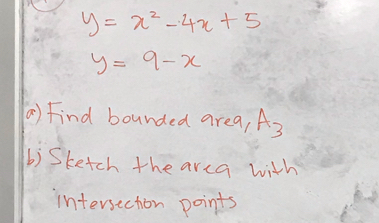 y = x² - 4x + 5
y = 9 - x
a) Find bounded area, A₃
b) Sketch the area with
intersection points